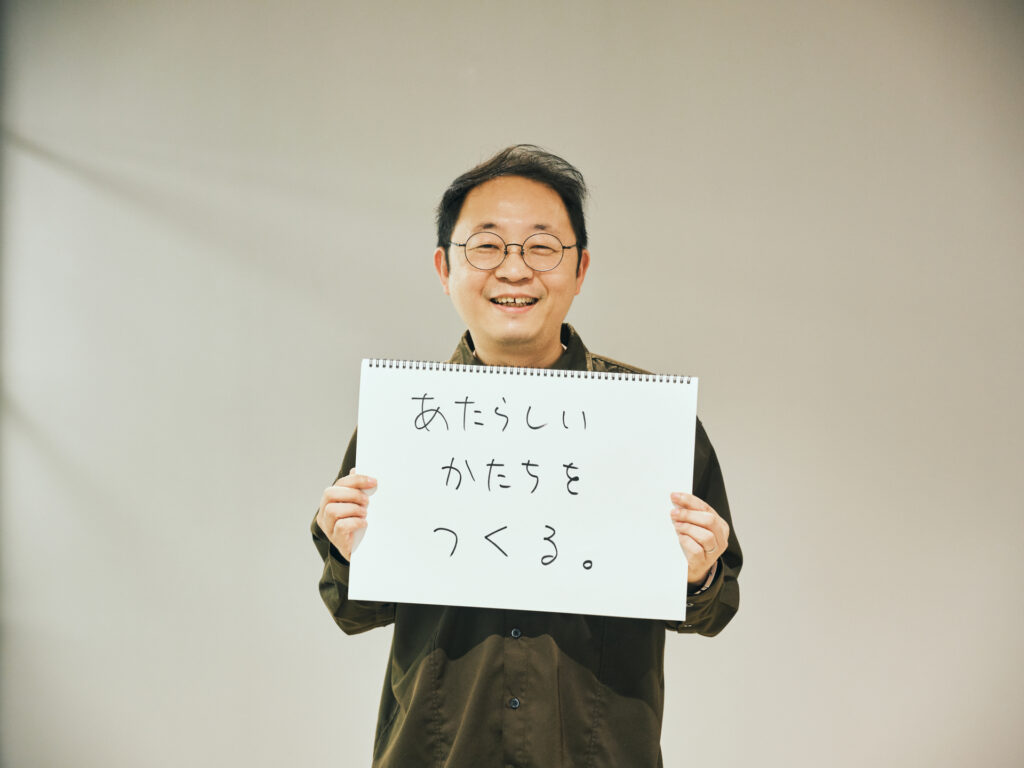 あたらしい
かたちを
つくる。